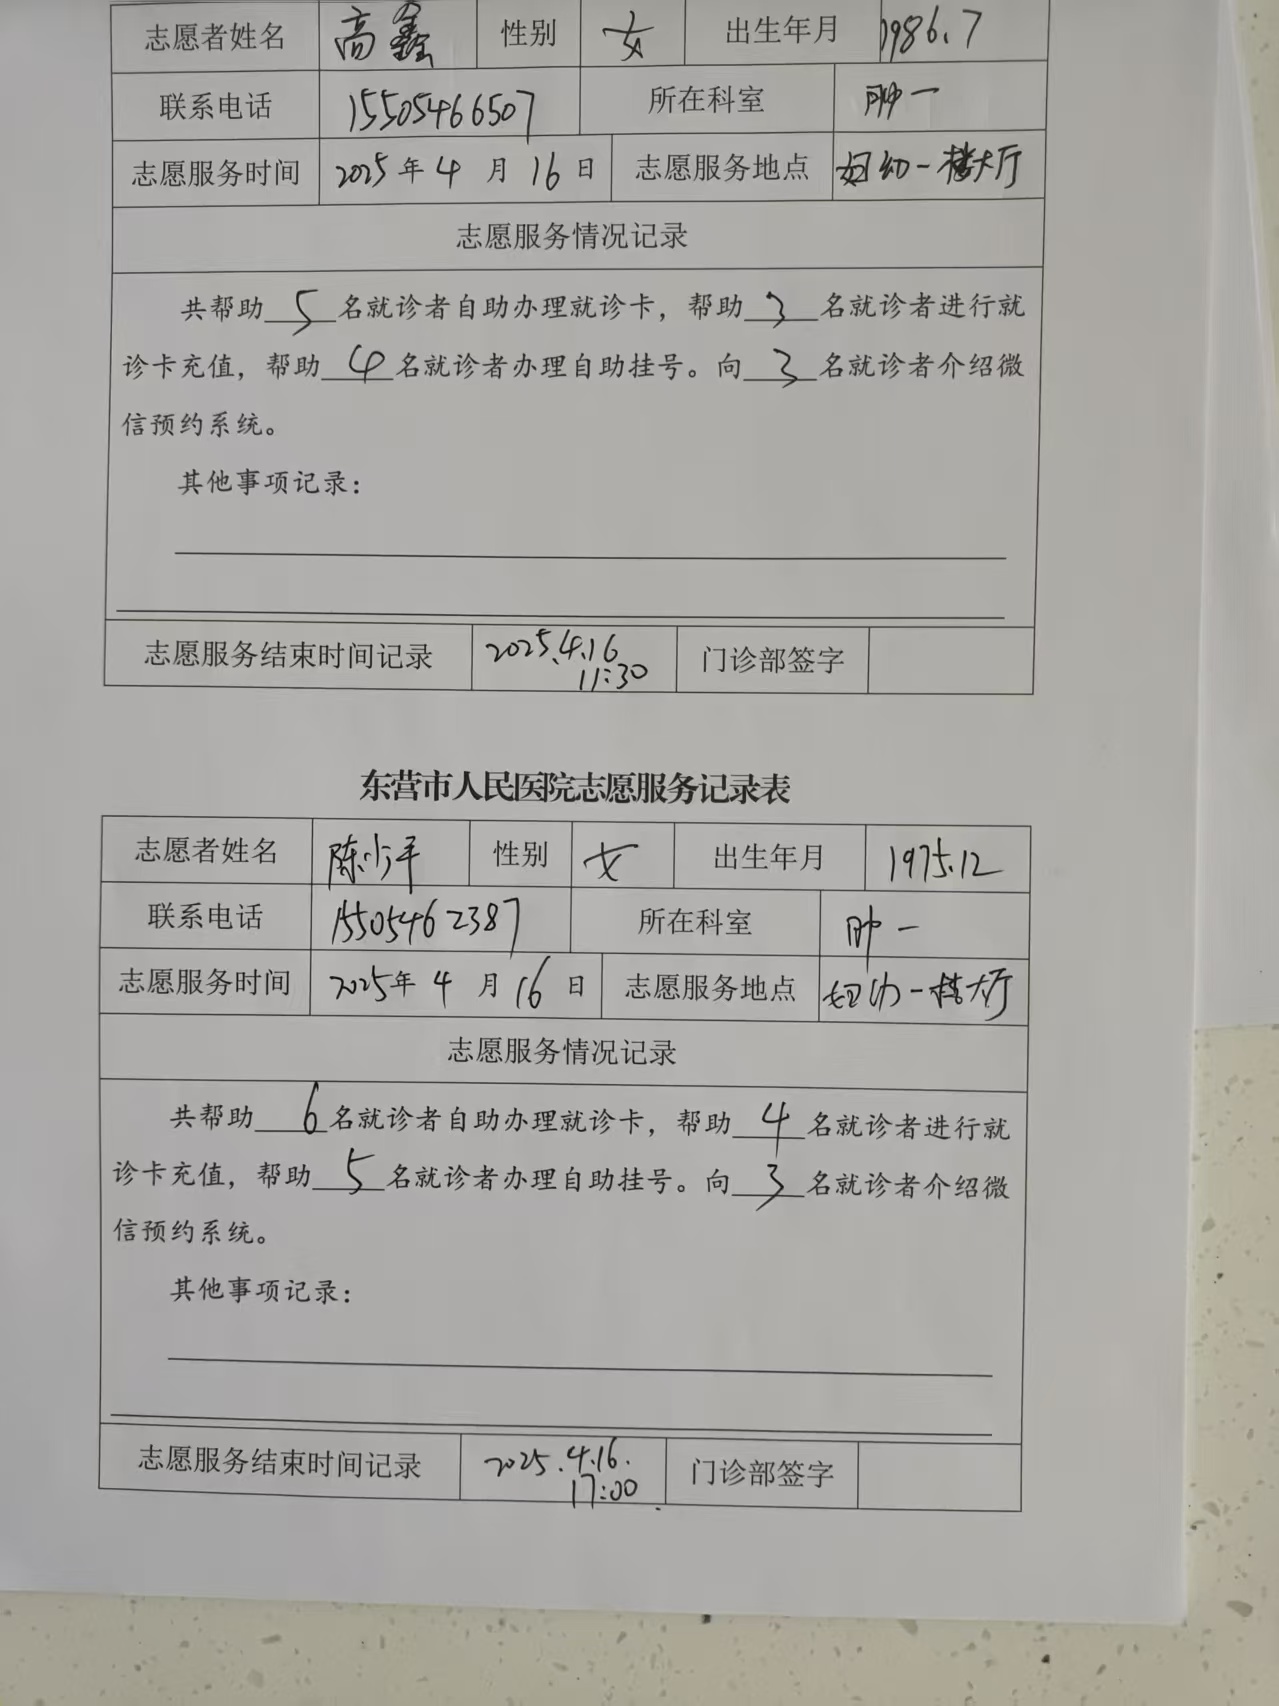 志愿者姓名 高鑫 性别 女 出生年月 1986.7
联系电话 15505466507 所在科室 肿一
志愿服务时间 2025年4月16日 志愿服务地点 妇幼一楼大厅
志愿服务情况记录
共帮助5名就诊者自助办理就诊卡，帮助3名就诊者进行就
诊卡充值，帮助4名就诊者办理自助挂号。向3名就诊者介绍微
信预约系统。
其他事项记录：
志愿服务结束时间记录 2025.4.16 门诊部签字
11:30
东营市人民医院志愿服务记录表
志愿者姓名 陈少平 性别 女 出生年月 1975.12
联系电话 15505462387 所在科室 肿一
志愿服务时间 2025年4月16日 志愿服务地点 妇幼一楼大厅
志愿服务情况记录
共帮助6名就诊者自助办理就诊卡，帮助4名就诊者进行就
诊卡充值，帮助5名就诊者办理自助挂号。向3名就诊者介绍微
信预约系统。
其他事项记录：
志愿服务结束时间记录 2025.4.16. 门诊部签字
17:00